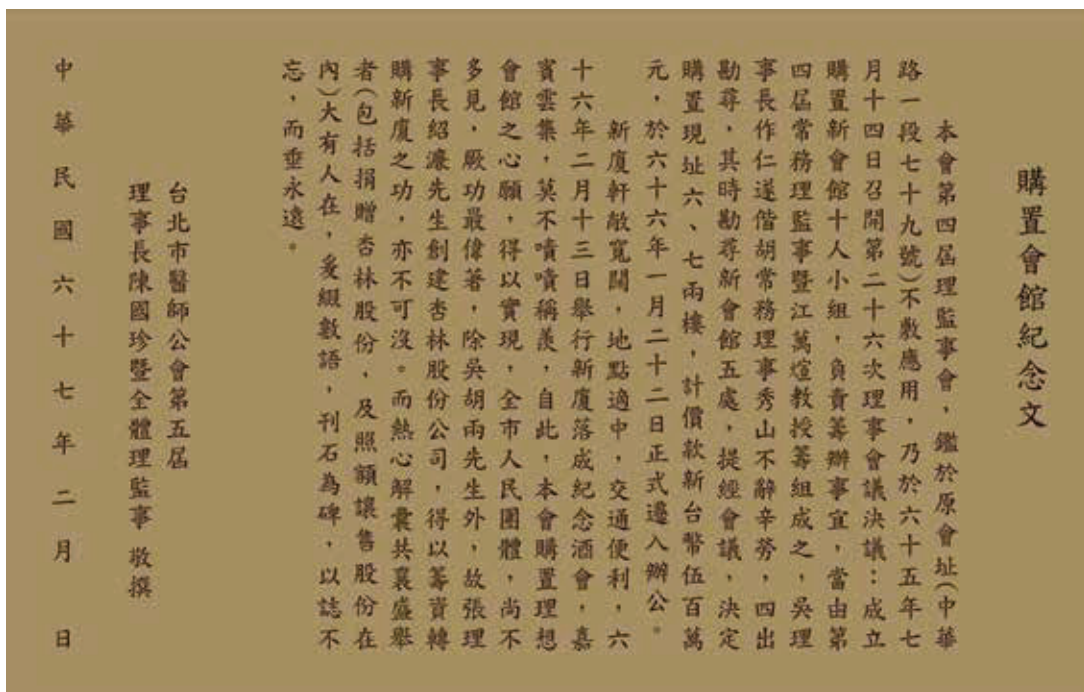 購置會館紀念文
本會第四屆理監事會，鑑於原會址(中華
路一段七十九號)不敷應用，乃於六十五年七
月十四日召開第二十六次理事會議決議：成立
購置新會館十人小組，負責籌辦事宜，當由第
四屆常務理監事暨江萬煊教授籌組成之，吳理
事長作仁遂偕胡常務理事秀山不辭辛勞，四出
勘尋，其時勘尋新會館五處，提經會議，決定
購置現址六、七兩樓，計價款新台幣伍百萬
元，於六十六年一月二十二日正式遷入辦公。
新廈軒敞寬闊，地點適中，交通便利，六
十六年二月十三日舉行新廈落成紀念酒會，嘉
賓雲集，莫不嘖嘖稱羨，自此，本會購置理想
會館之心願，得以實現，全市人民團體，尚不
多見，厥功最偉著，除吳胡兩先生外，故張理
事長紹濂先生創建杏林股份公司，得以籌資轉
購新廈之功，亦不可沒。而熱心解囊共襄盛舉
者(包括捐贈杏林股份，及照額讓售股份在
內)大有人在，爰綴數語，刊石為碑，以誌不
忘，而垂永遠。
台北市醫師公會第五屆
理事長陳國珍暨全體理監事 敬撰
中華民國六十七年二月 日